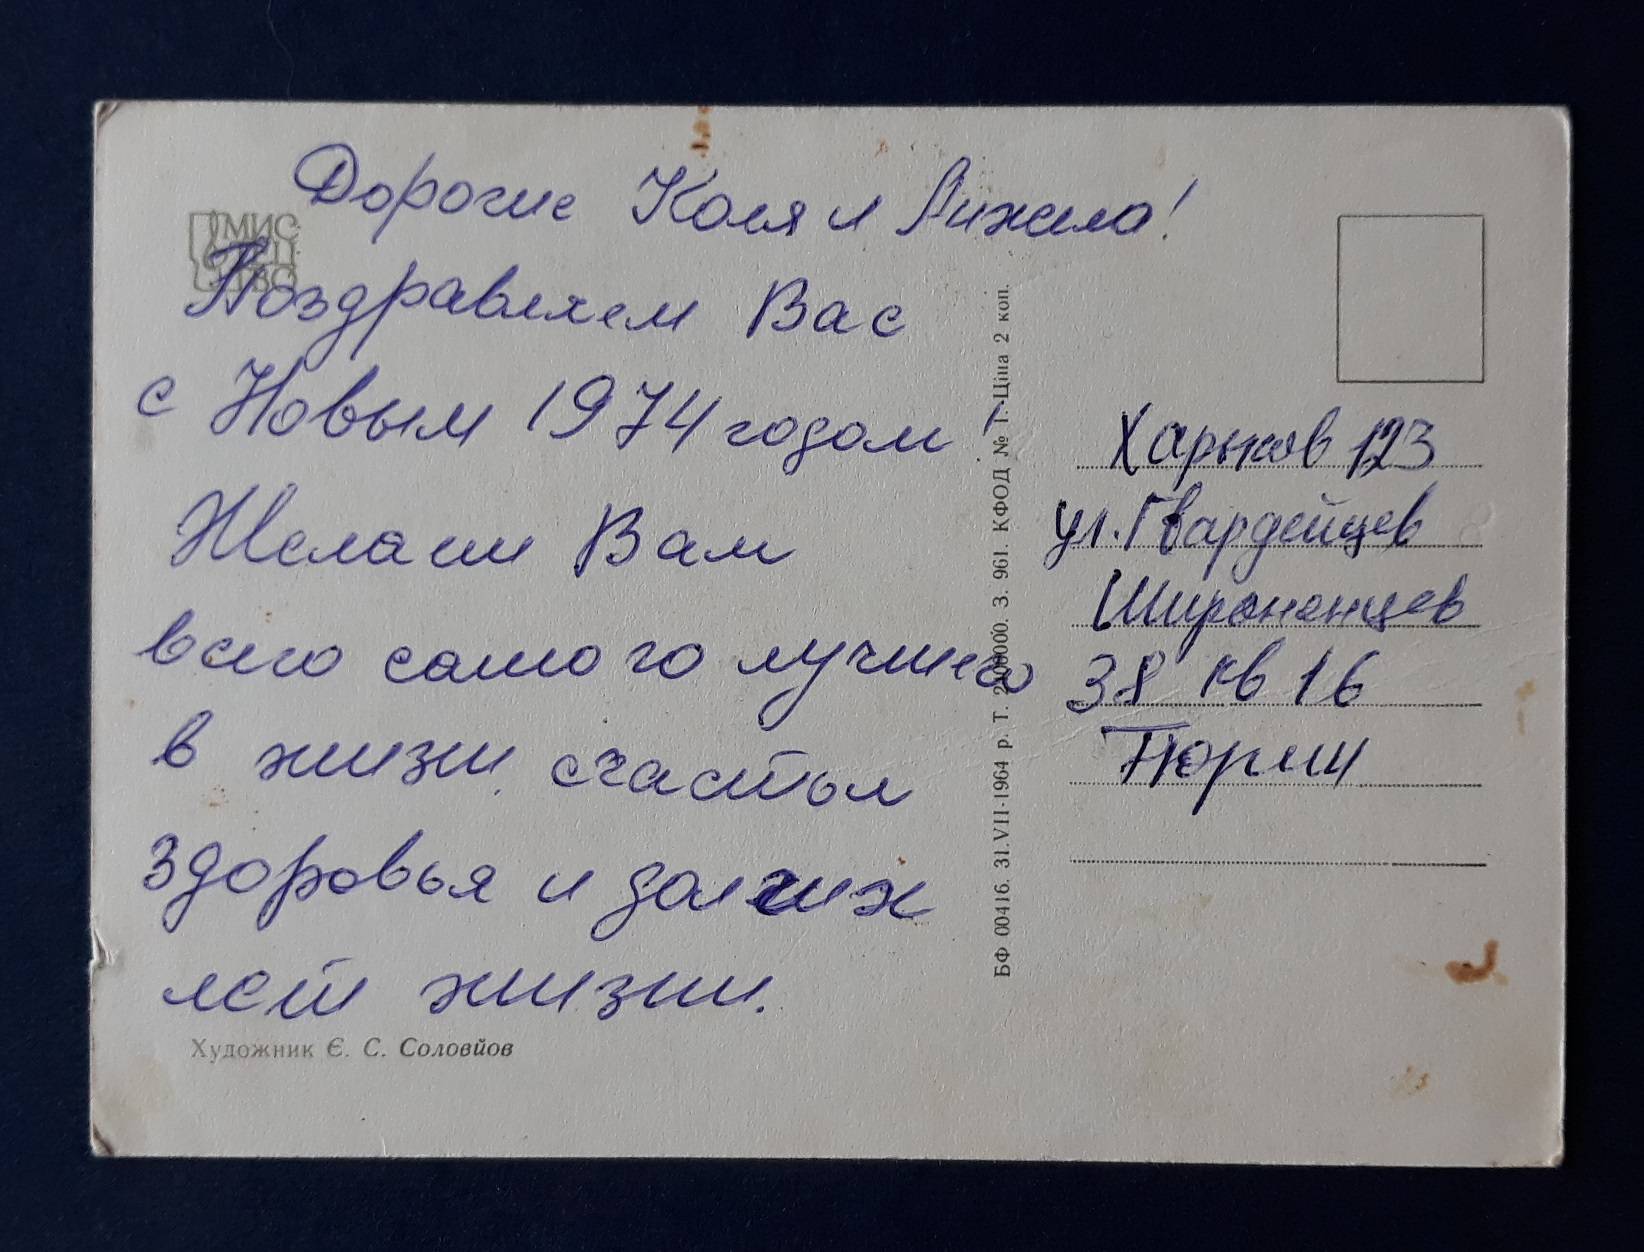 Дорогие Коля и Анжела!
МИС
ТЕЦ
ТВО
Поздравляем Вас
с Новым 1974 годом!
Желаем Вам
всего самого лучшего
в жизни, счастья
здоровья и долгих
лет жизни.
Художник Є. С. Соловйов
БФ 00416. 31.VII-1964 р. Т. 000. З. 961. КФОД № 1. Ціна 2 коп.
Харьков 123
ул. Гвардейцев
Широненцев
38 кв 16